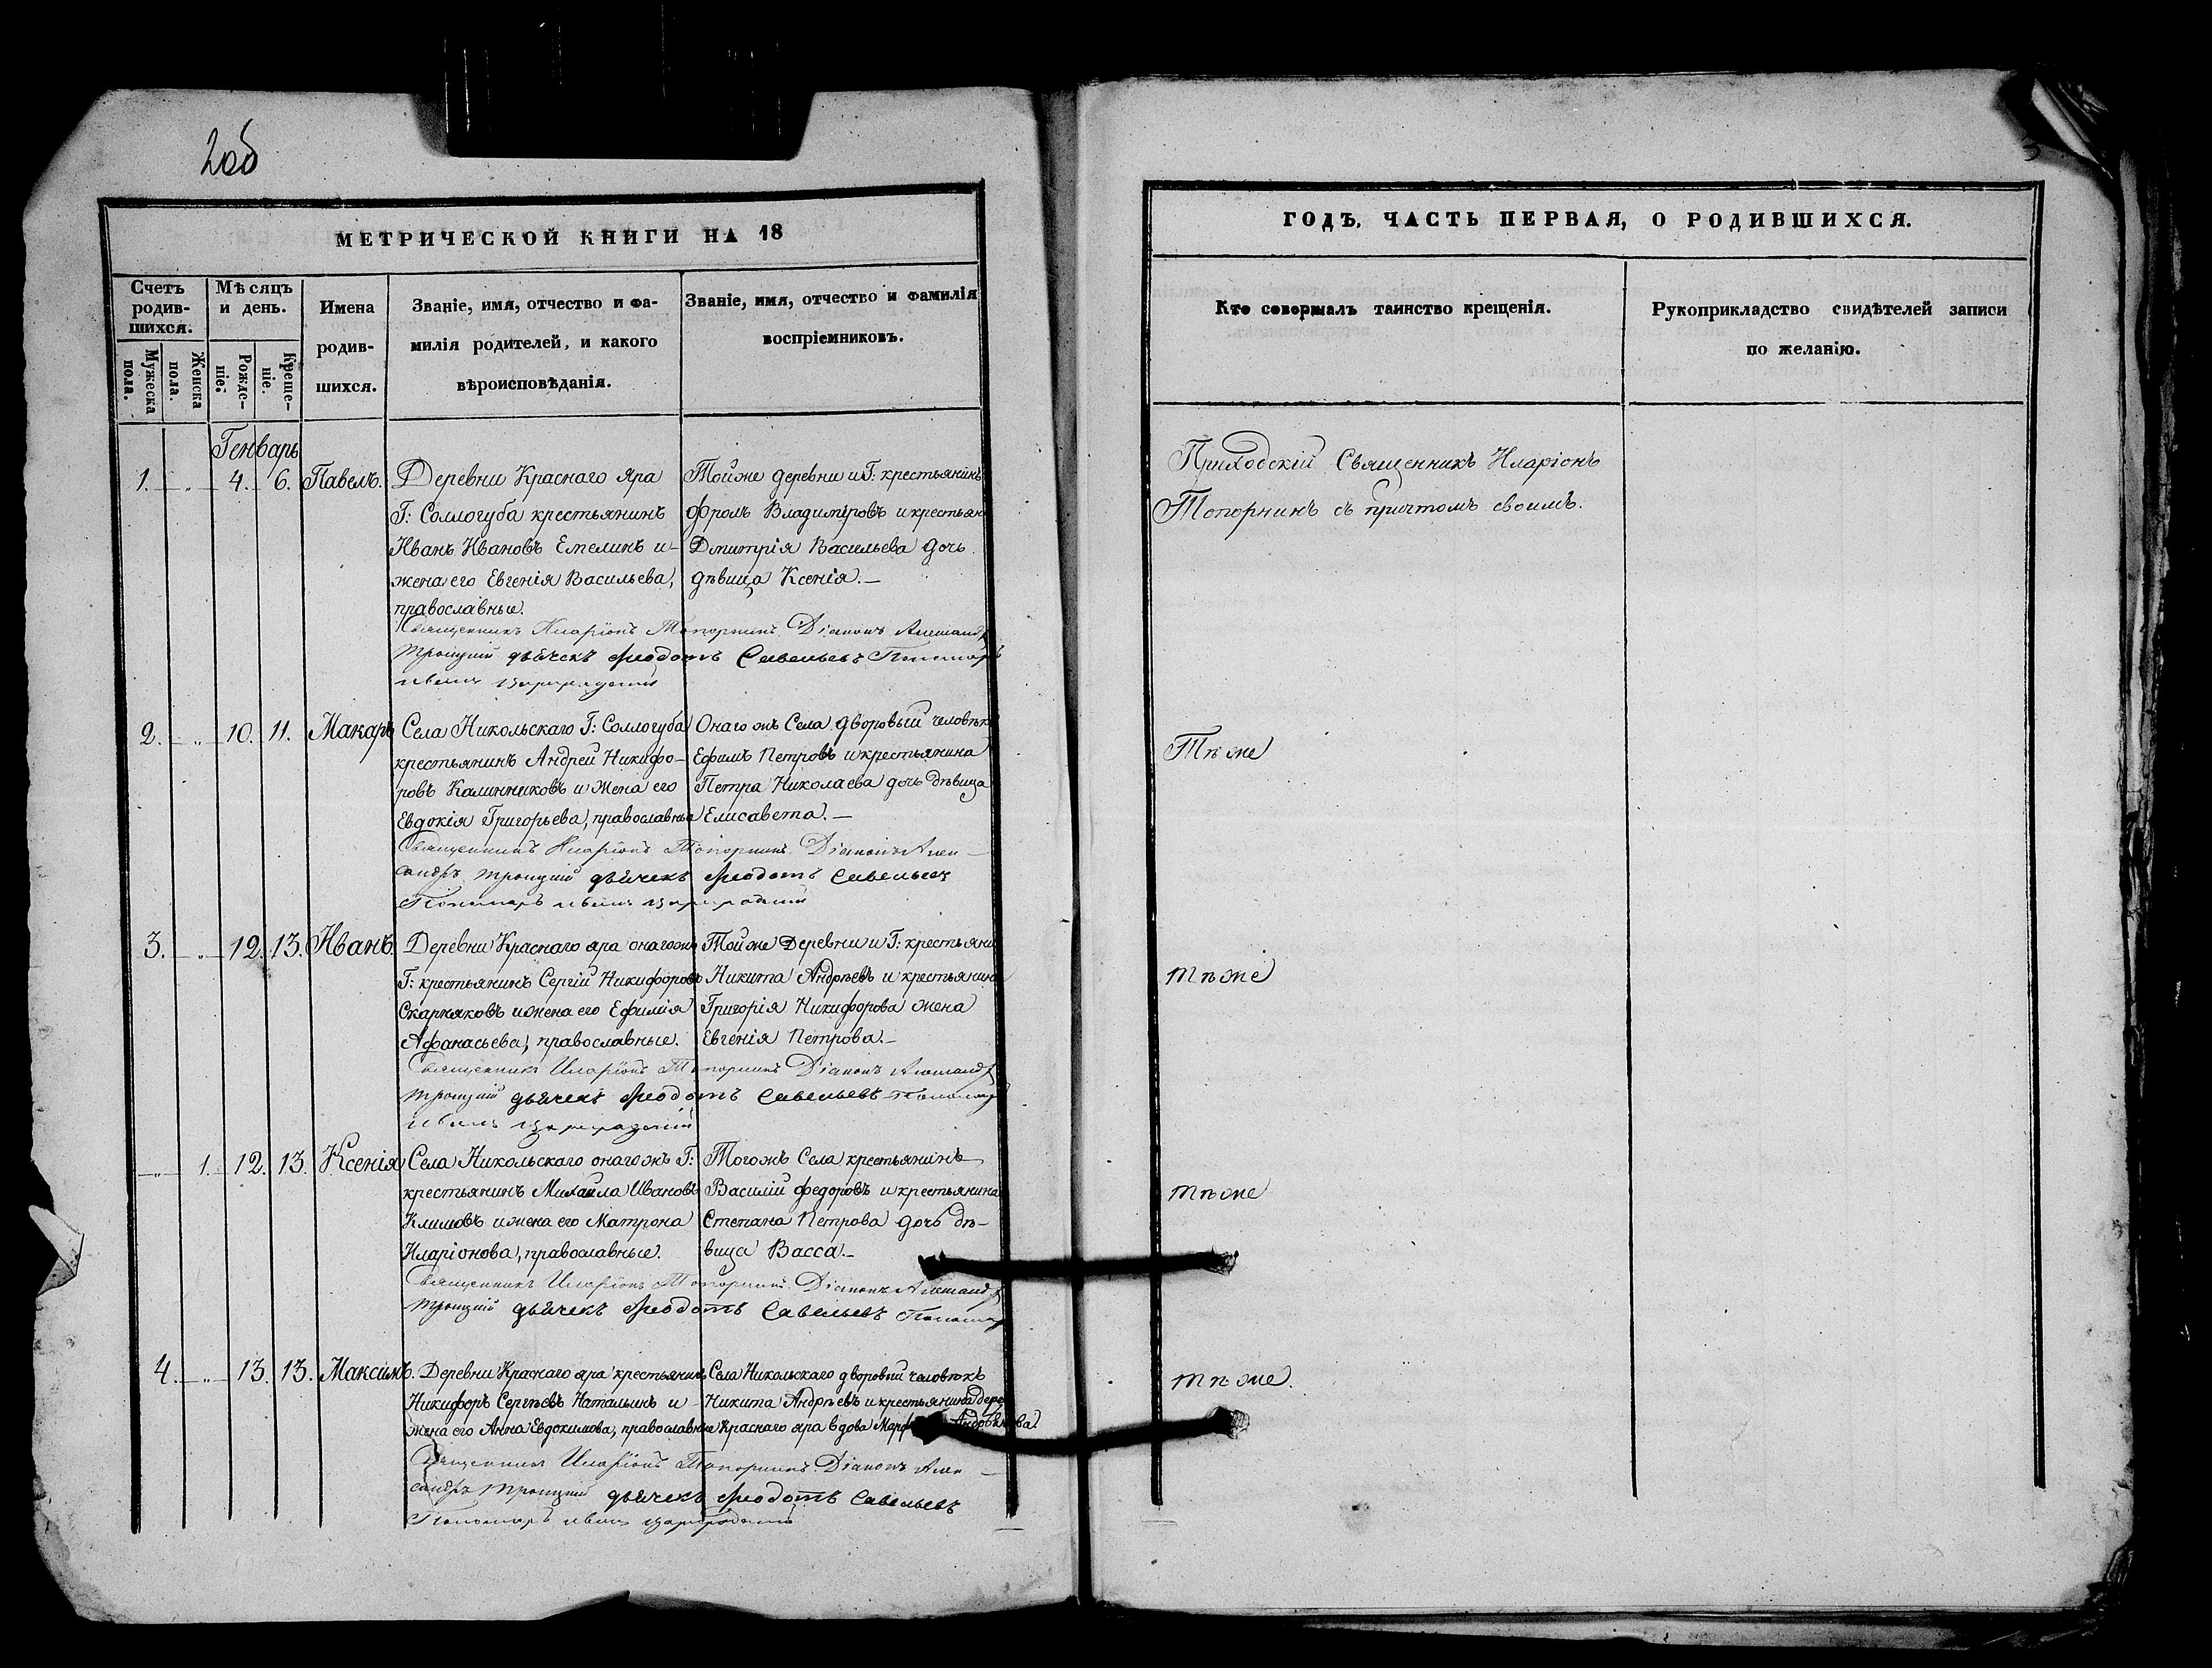 2об
3
МЕТРИЧЕСКОЙ КНИГИ НА 18
Счетъ родив-шихся.
Мѣсяцъ и день.
Мужеска пола.
Женска пола.
Рожде-ніе.
Креще-ніе.
Имена
родив-
шихся.
Званіе, имя, отчество и фа-
милія родителей, и какого
вѣроисповѣданія.
Званіе, имя, отчество и фамилія
воспріемниковъ.
Генварь
1. „ 4. 6. Павелъ.
Деревни Краснаго Яра
Г: Соллогуба крестьянинъ
Иванъ Ивановъ Емелинъ и
жена его Евгенія Васильева,
православные.
Тойже деревни и Г: крестьянинъ
Фролъ Владиміровъ и крестьян
Дмитрія Васильева дочь
дѣвица Ксенія.—
Священникъ Иларіонъ Топорнинъ Діаконъ Александръ
Троицкій дьячекъ Ѳеодотъ Савельевъ Пономарь
2. „ 10. 11. Макаръ
Села Никольскаго Г: Соллогуба
крестьянинъ Андрей Никифо-
ровъ Калинниковъ и жена его
Евдокія Григорьева, православные
Онагожъ Села дворовый человѣкъ
Ефимъ Петровъ и крестьянина
Петра Николаева дочь дѣвица
Елисавета.—
Священникъ Иларіонъ Топорнинъ Діаконъ Алек-
сандръ Троицкій дьячекъ Ѳеодотъ Савельевъ
Пономарь
3. „ 12. 13. Иванъ.
Деревни Краснаго яра онагожъ
Г: крестьянинъ Сергій Никифоровъ
Скарняковъ и жена его Ефимія
Афанасьева, православные.
Тойже Деревни и Г: крестьяни
Никита Андреевъ и крестьянина
Григорія Никифорова жена
Евгенія Петрова.—
Священникъ Иларіонъ Топорнинъ Діаконъ Александръ
Троицкій дьячекъ Ѳеодотъ Савельевъ Пономарь
„ 1. 12. 13. Ксенія
Села Никольскаго онагожъ Г:
крестьянинъ Михайла Ивановъ
Климовъ и жена его Матрона
Иларіонова, православные.
Тогожъ Села крестьянинъ
Василій Федоровъ и крестьянина
Степана Петрова дочь дѣ-
вица Васса.—
Священникъ Иларіонъ Топорнинъ Діаконъ Александръ
Троицкій дьячекъ Ѳеодотъ Савельевъ Пономарь
4. „ 13. 13. Максимъ.
Деревни Краснаго яра крестьянинъ
Никифоръ Сергѣевъ Натальинъ и
жена его Анна Евдокимова, православные
Села Никольскаго дворовый человѣкъ
Никита Андрѣевъ и крестьянина дере
Краснаго яра вдова
Священникъ Иларіонъ Топорнинъ Діаконъ Алек-
сандръ Троицкій дьячекъ Ѳеодотъ Савельевъ
Пономарь
ГОДЪ, ЧАСТЬ ПЕРВАЯ, О РОДИВШИХСЯ.
Кто совершалъ таинство крещенія.
Рукоприкладство свидѣтелей записи
по желанію.
Приходскій Священникъ Иларіонъ
Топорнинъ съ причтомъ своимъ.
Тѣже
тѣже
тѣже
тѣже.